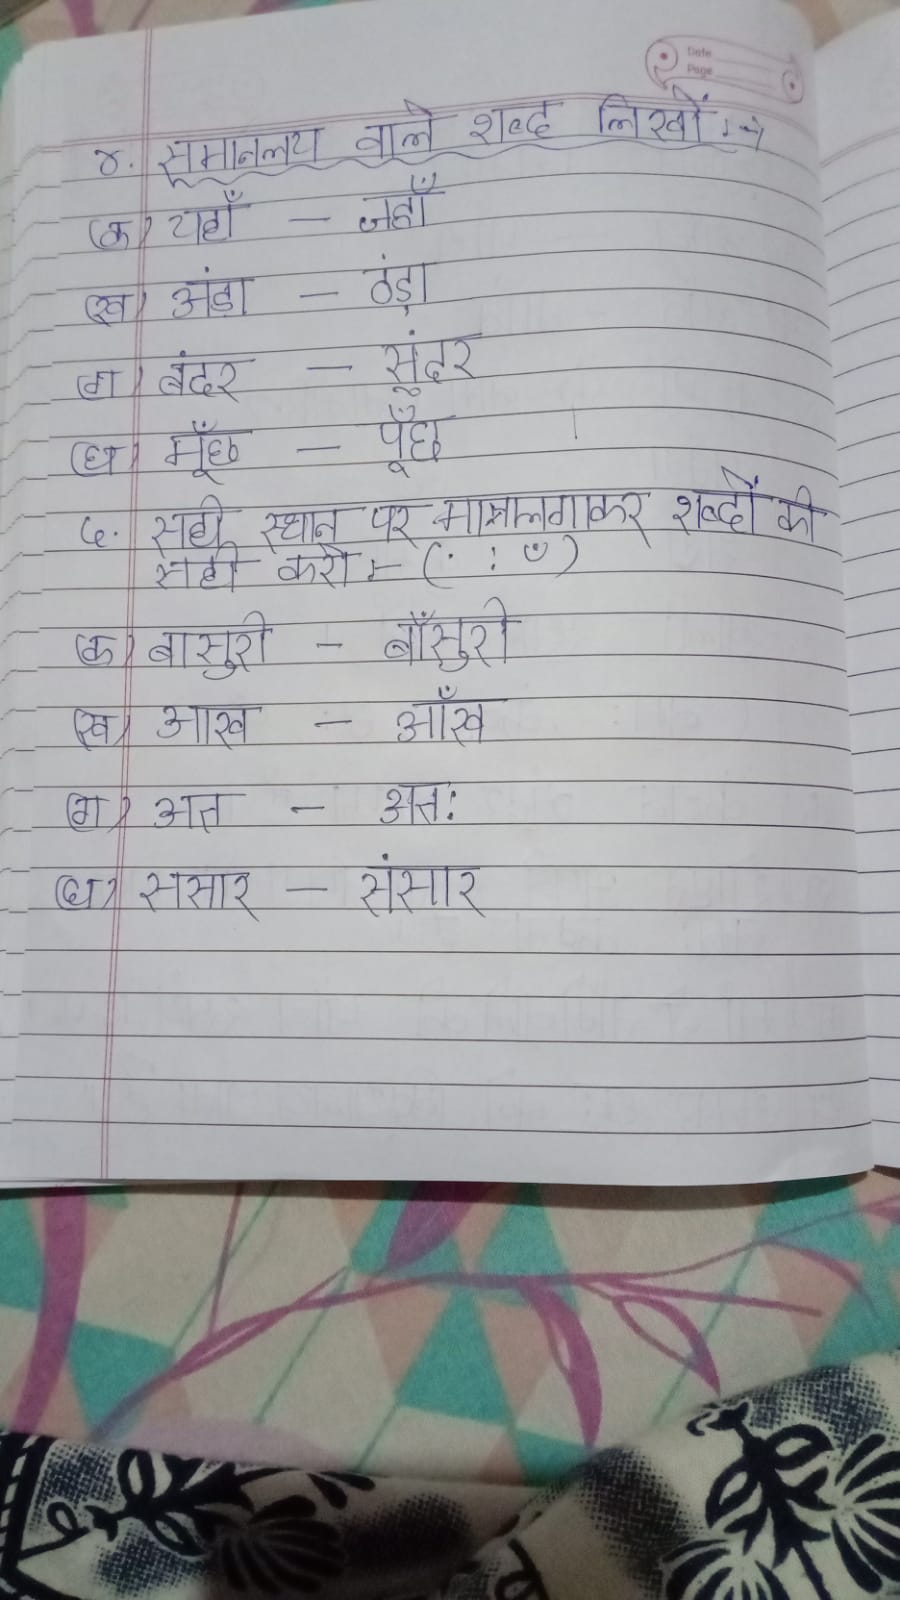 Date
Page
४. समानलय वाले शब्द लिखों :→
(क) यहाँ — जहाँ
(ख) अंडा — ठंड़ा
(ग) बंदर — सुंदर
(घ) मूँछ — पूँछ
५. सही स्थान पर मात्रालगाकर शब्दों की
सही करो :- (ं : ँ)
(क) बासुरी — बाँसुरी
(ख) आख — आँख
(ग) अत — अतः
(घ) ससार — संसार